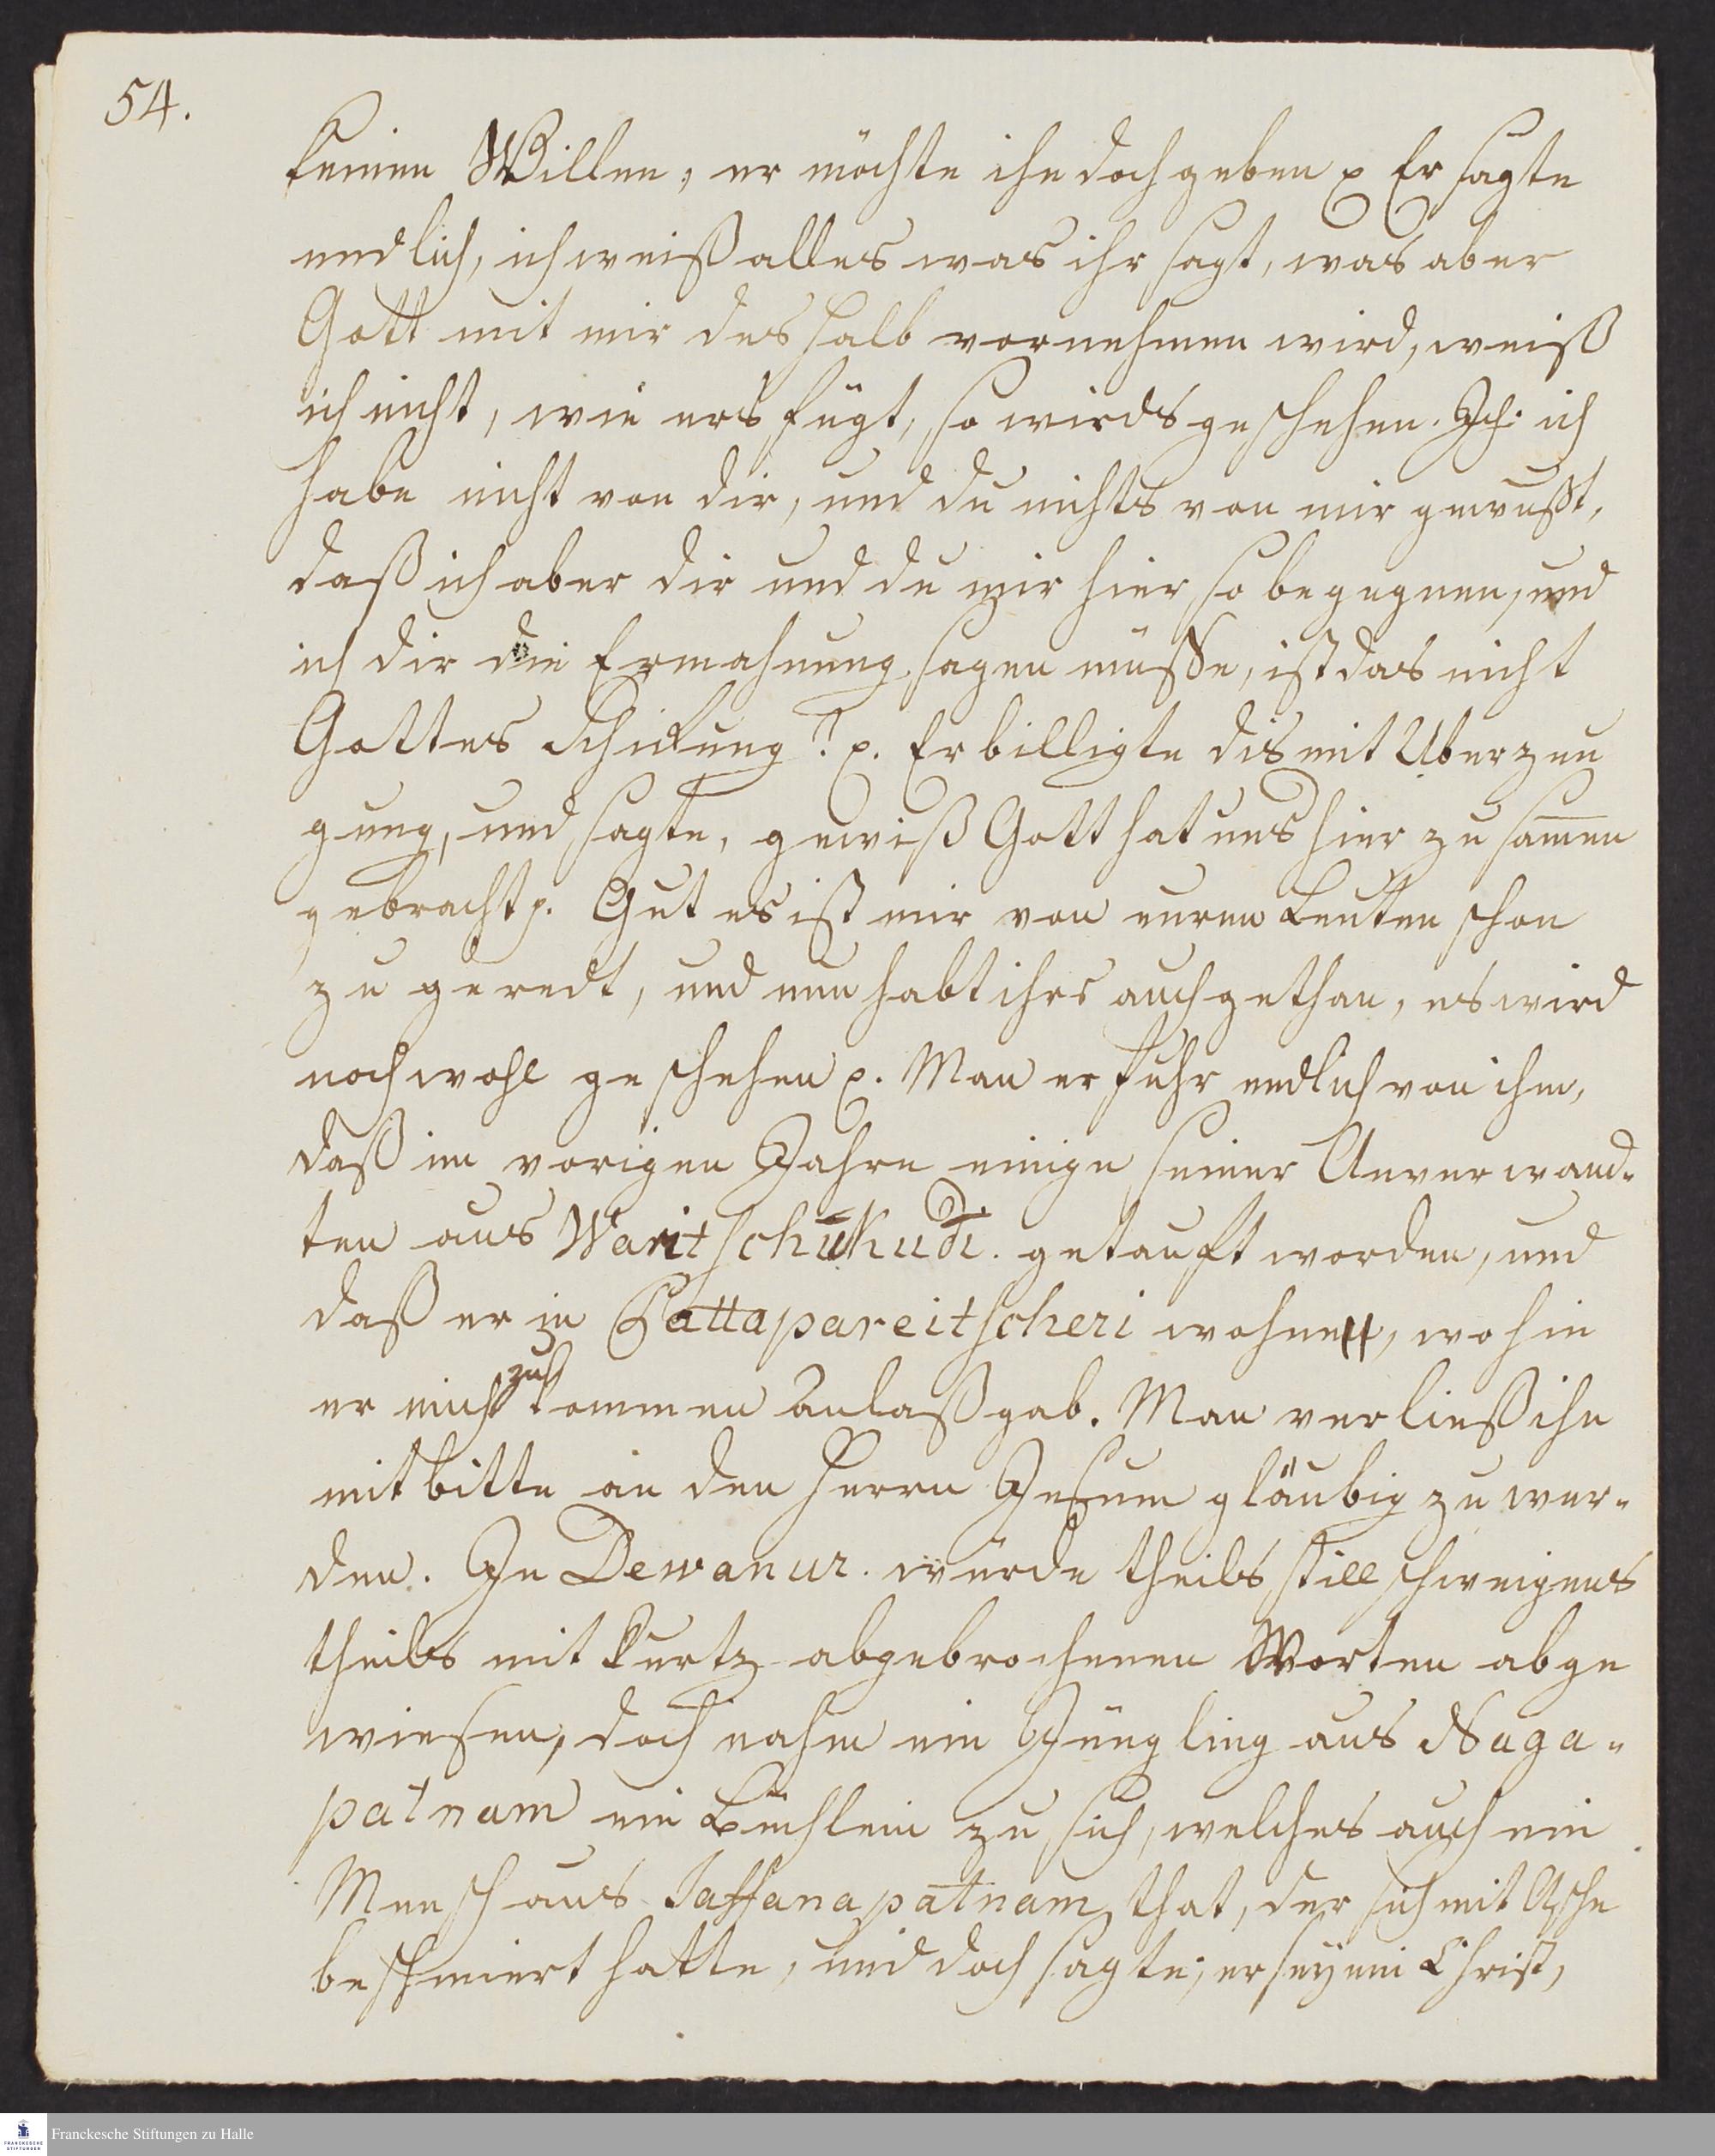 54.
keinen Willen, er möchte ihn doch geben p Er sagte
endlich, ich weiß alles was ihr sagt, was aber
Gott mit mir deshalb vornehmen wird, weiß
ich nicht, wie ers fügt, so wirds geschehen. Ich: ich
habe nicht von dir, und du nichts von mir gewußt,
daß ich aber dir und du mir hier so begegnen, und
ich dir die Ermahnung sagen müsse, ist das nicht
Gottes Schikung? p. Er billigte dis mit Uberzeu
gung, und sagte, gewiß Gott hat uns hier zusam̅en
gebracht p. Gut es ist mir von euren Leuten schon
zu geredt, und nun habt ihrs auch gethan, es wird
noch wohl geschehen p. Man erfuhr endlich von ihm,
daß im vorigen Jahre einige seiner Anverwand-
ten aus Waritschukudi. getauft worden, und
daß er in Pattapareitscheri wohne, wohin
er mich zu kommen Anlaß gab. Man verließ ihn
mit bitte an den Herrn Jesum gläubig zu wer-
den. In Dewanur. wurde theils stillschweigens
theils mit kurtz abgebrochenen Worten abge
wiesen, doch nahm ein Jüngling aus Naga-
patnam ein Büchlein zu sich, welches auch ein
Mensch aus Jaffanapatnam that, der sich mit Asche
beschmiert hatte, und doch sagte, er sey ein Christ,
Franckesche Stiftungen zu Halle